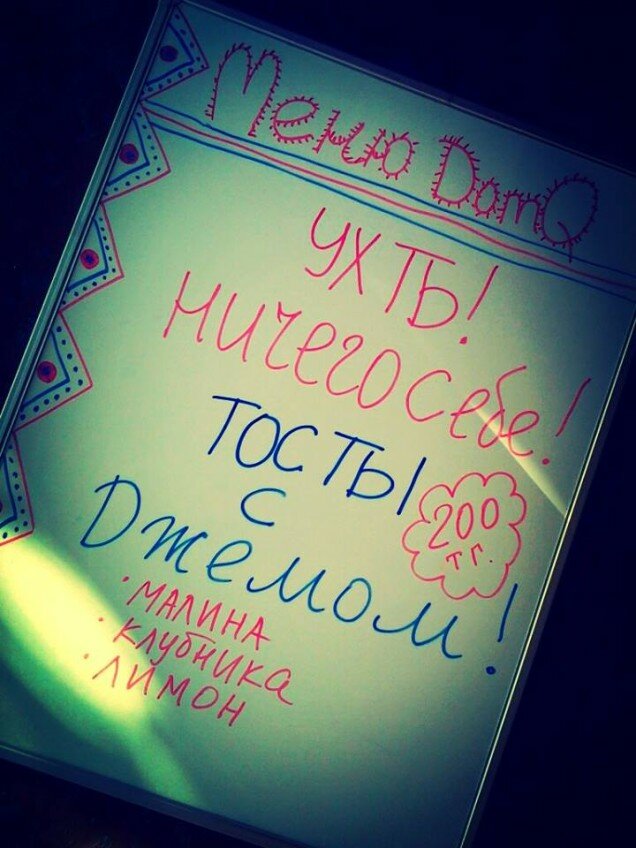 Меню DomQ
УХ ТЬ!
НИЧЕГО СЕБЕ!
ТОСТЫ
С
Джемом!
200
тг.
· МАЛИНА
· КЛУБНИКА
· ЛИМОН